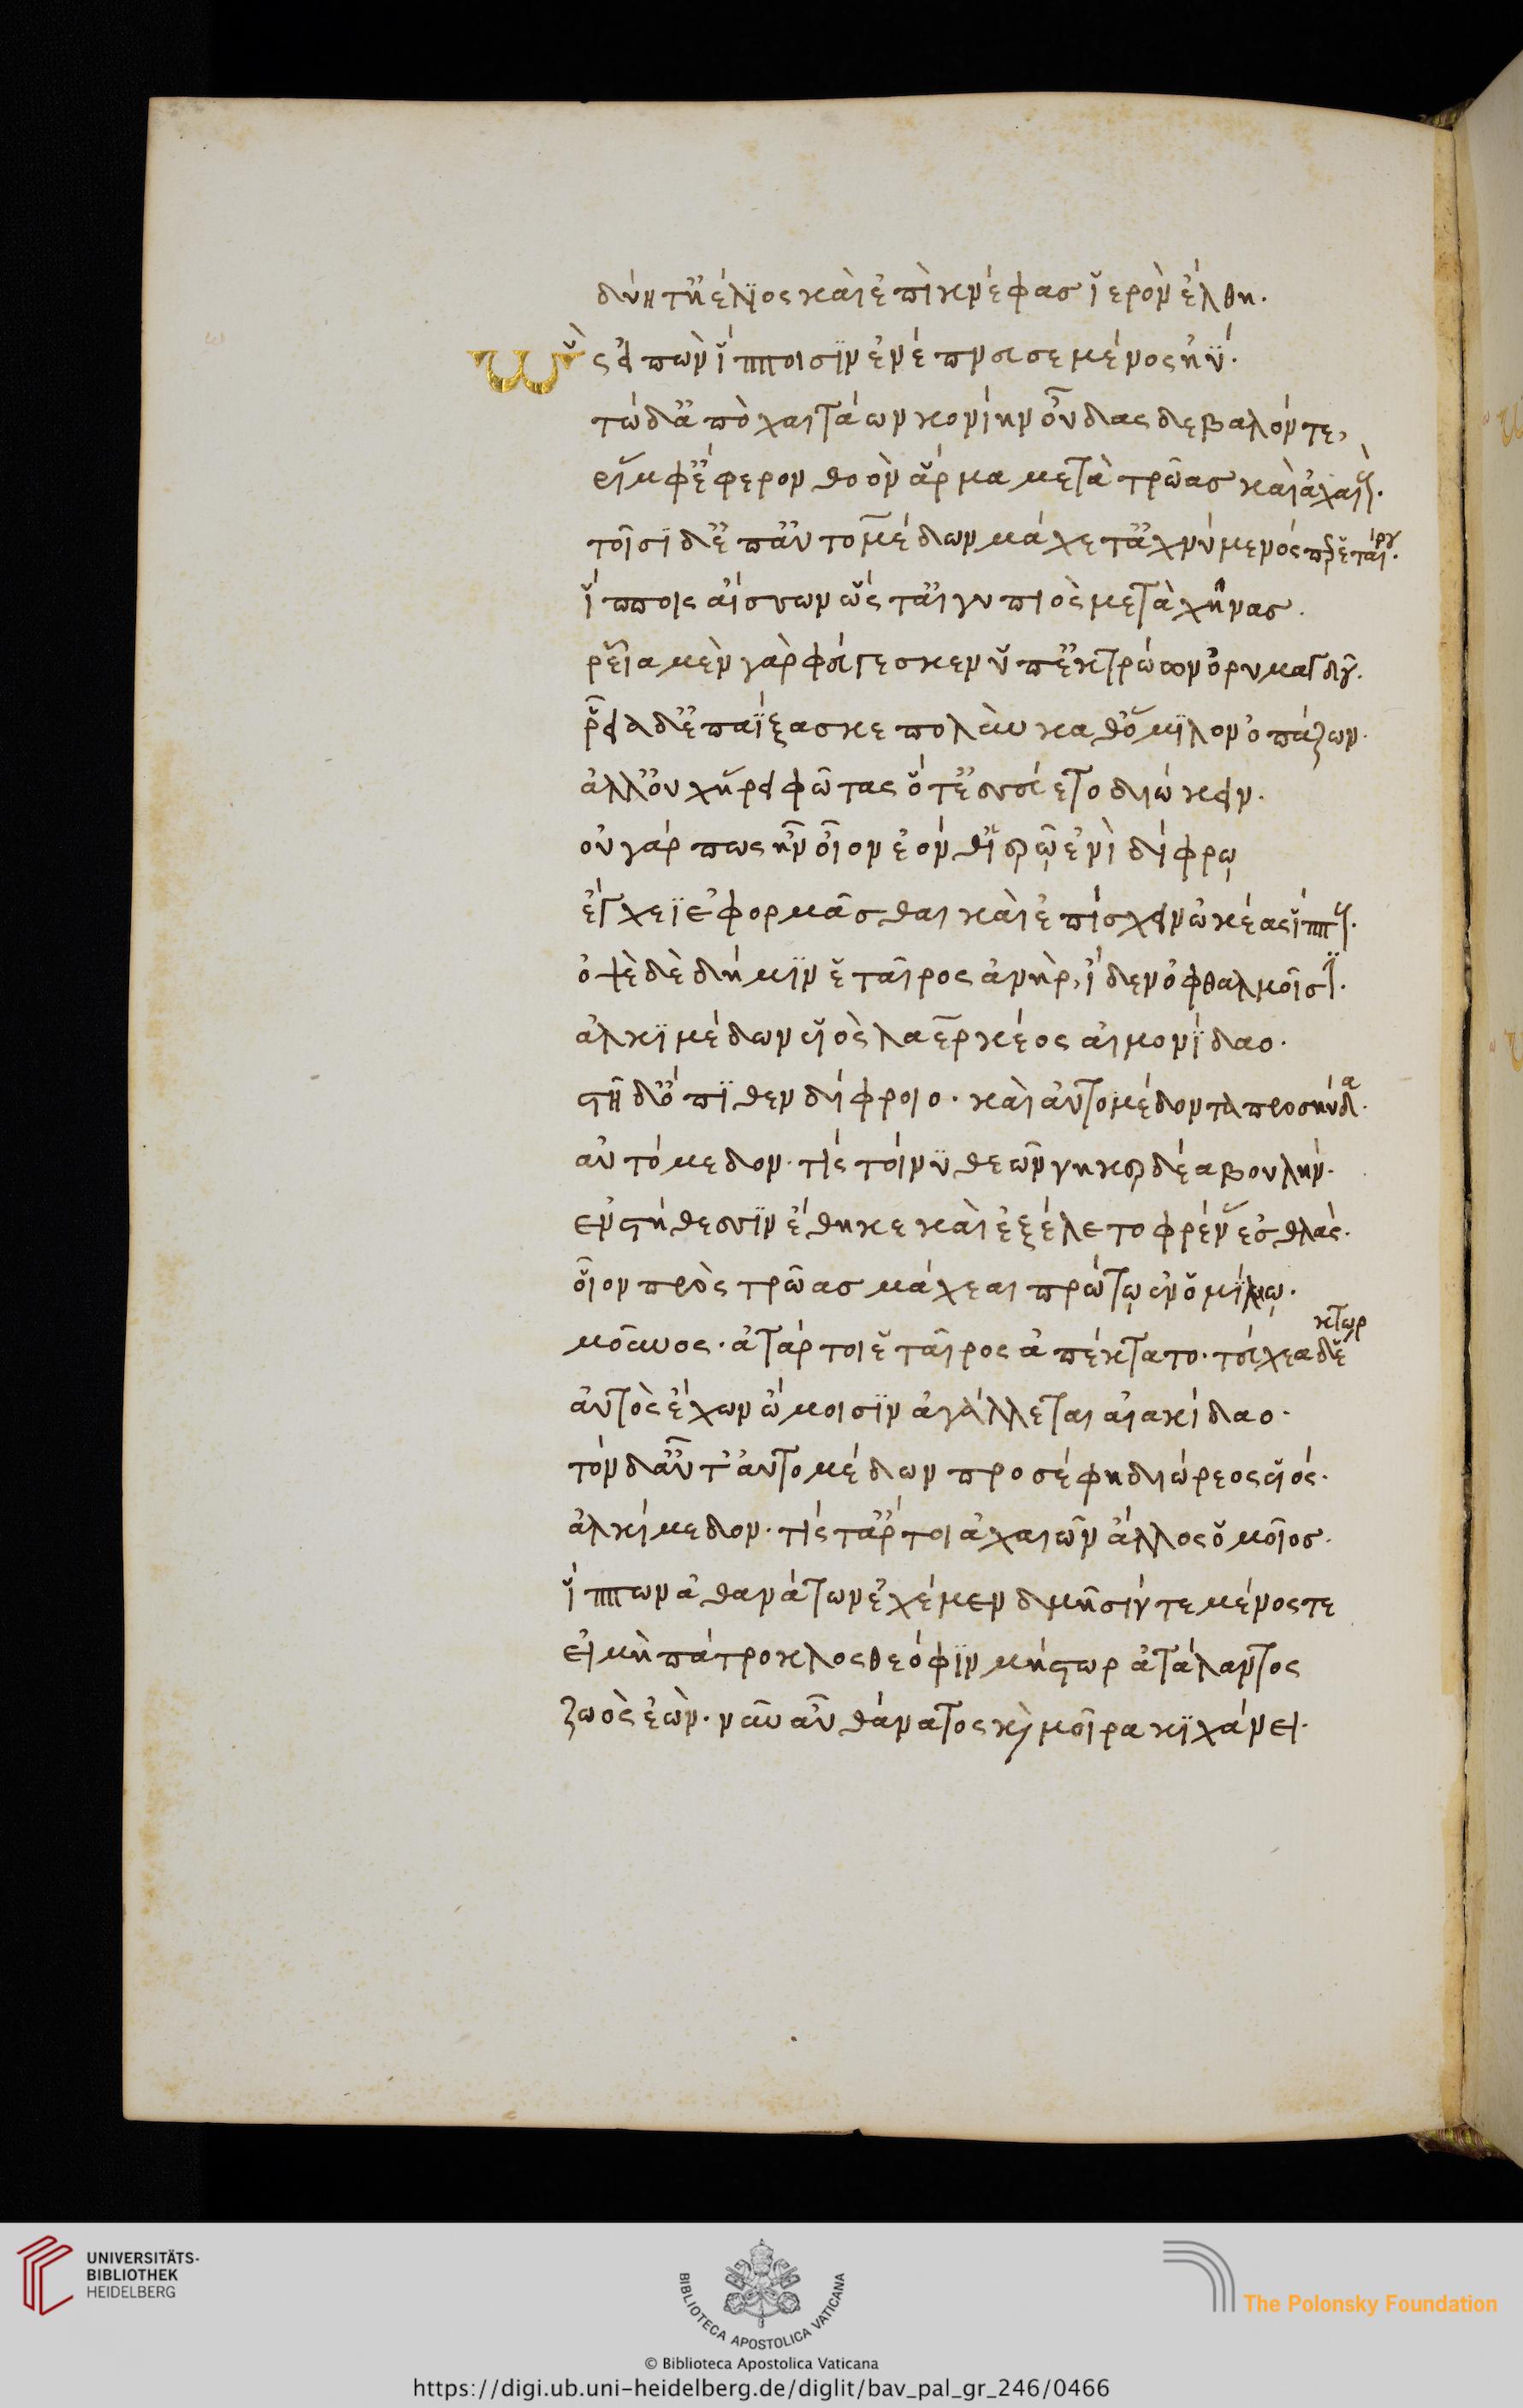 δύῃ τ' ἠέλϊος καὶ ἐπὶ κνέφας ἱερὸν ἔλθη.
Ὣς εἰπὼν ἵπποισϊν ἐνέπνευσε μένος ἠΰ.
τὼ δ' ἀπὸ χαιτάων κονίην οὖδας δὲ βαλόντε,
ῥίμφ' ἔφερον θοὸν ἅρμα μετὰ τρῶας καὶ ἀχαιούς.
τοῖσϊ δ' ἐπ' αὐτομέδων μάχετ' ἀχνύμενός περ ἑταίρου.
ἵπποις ἀΐσσων ὥς τ' αἰγυπιὸς μετὰ χῆνας.
ῥεῖα μὲν γὰρ φεύγεσκεν ὑπ' ἐκ τρώων ὀρυμαγδοῦ.
ῥεῖα δ' ἐπαΐξασκε πολὺν καθ' ὅμϊλον ὀπάζων.
ἀλλ' οὐχ ἥρει φῶτας ὅτ' ἐσσεύετο διώκειν.
οὐ γάρ πως ἦν οἶον ἐόνθ' ἱερῷ ἐνὶ δίφρῳ
ἔγχεϊ ἐφορμᾶσθαι καὶ ἐπίσχειν ὠκέας ἵππους.
ὀψὲ δὲ δή μϊν ἑταῖρος ἀνὴρ, ἴδεν ὀφθαλμοῖσϊν.
ἀλκϊμέδων υἱὸς λαέρκέος αἱμονίδαο.
στῆ δ' ὄπϊθεν δίφροιο. καὶ αὐτομέδοντα προσηύδα.
αὐτόμεδον. τίς τοί νϋ θεῶν νηκερδέα βουλήν.
ἐν στήθεσσϊν ἔθηκε καὶ ἐξέλετο φρένας ἐσθλάς.
οἷον πρὸς τρῶας μάχεαι πρώτῳ ἐν ὁμίλῳ.
μοῦνος. ἀτάρ τοι ἑταῖρος ἀπέκτατο. τεύχεα δ' ἕκτωρ
αὐτὸς ἔχων ὤμοισϊν ἀγάλλεται αἰακίδαο.
τὸν δ' αὖτ' αὐτομέδων προσέφη διώρεος υἱός.
ἀλκίμεδον. τίς τάρ τοι ἀχαιῶν ἄλλος ὁμοῖος.
ἵππων ἀθανάτων ἐχέμεν δμῆσίν τε μένος τε
εἰ μὴ πάτροκλος θεόφϊν μήστωρ ἀτάλαντος
ζωὸς ἐὼν. νῦν αὖ θάνατος καὶ μοῖρα κϊχάνει.
UNIVERSITÄTS-
BIBLIOTHEK
HEIDELBERG
BIBLIOTECA APOSTOLICA VATICANA
The Polonsky Foundation
© Biblioteca Apostolica Vaticana
https://digi.ub.uni-heidelberg.de/diglit/bav_pal_gr_246/0466